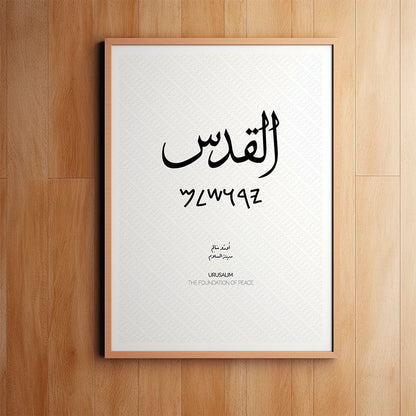 القدس
𐤉𐤓𐤅𐤔𐤋𐤌
أورو سالم
مدينة السلام
URUSALIM
THE FOUNDATION OF PEACE